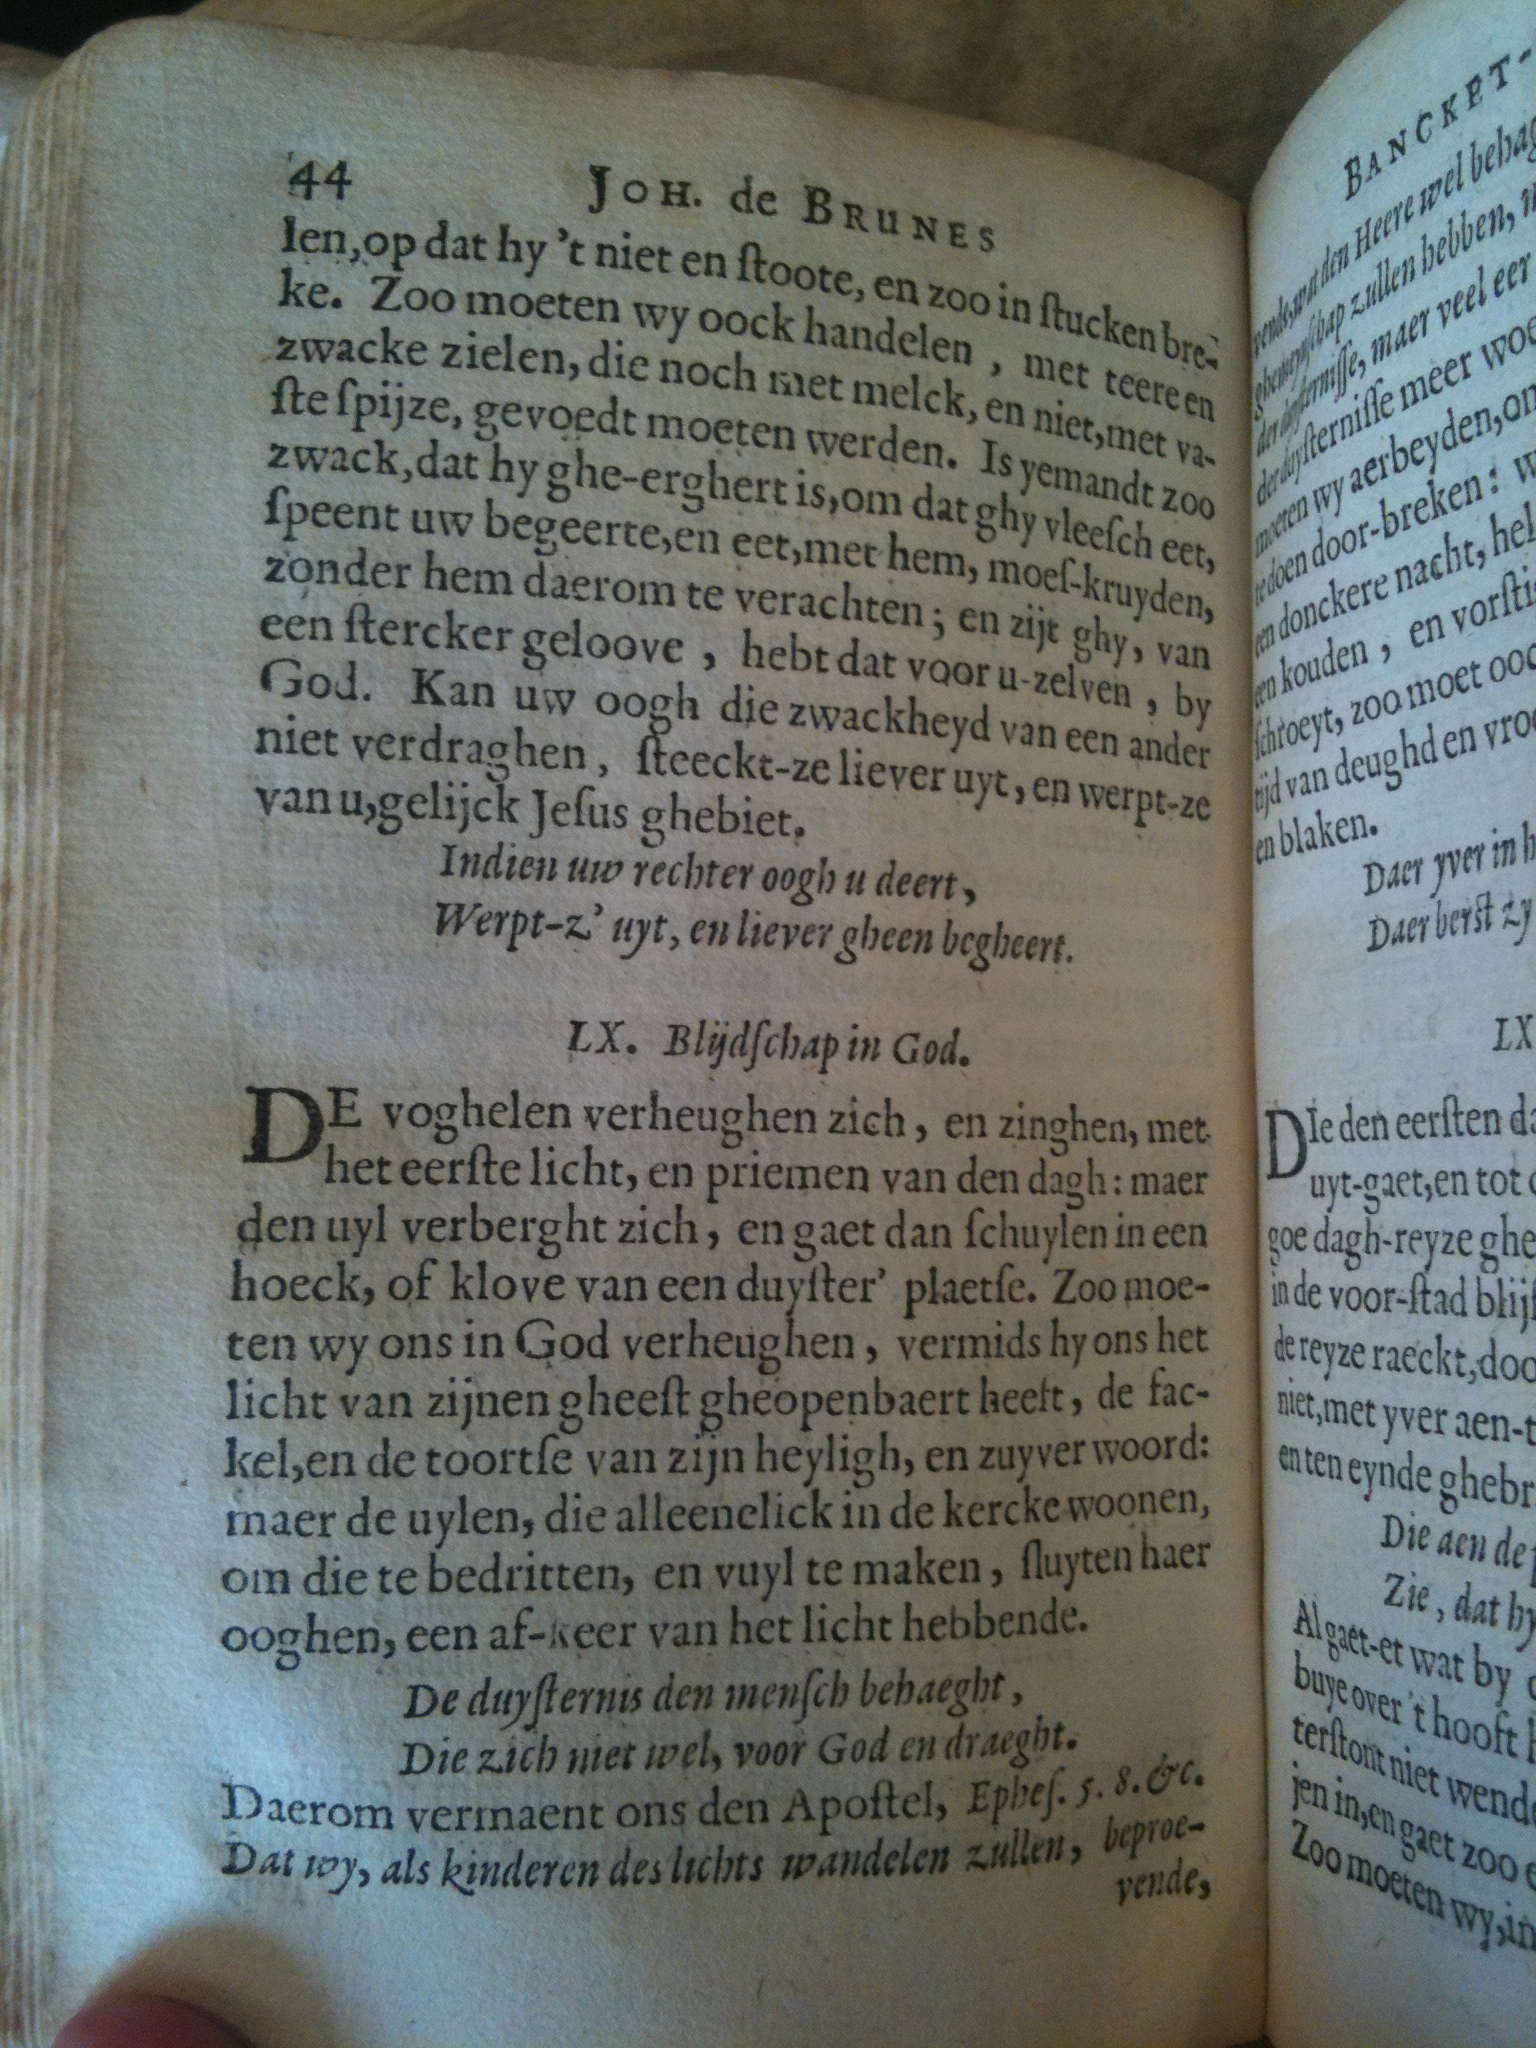 44 JOH. de BRUNES
len, op dat hy 't niet en ſtoote, en zoo in ſtucken bre-
ke. Zoo moeten wy oock handelen, met teere en
zwacke zielen, die noch met melck, en niet, met va-
ſte ſpijze, gevoedt moeten werden. Is yemandt zoo
zwack, dat hy ghe-erghert is, om dat ghy vleeſch eet,
ſpeent uw begeerte, en eet, met hem, moeſ-kruyden,
zonder hem daerom te verachten; en zijt ghy, van
een ſtercker geloove, hebt dat voor u-zelven, by
God. Kan uw oogh die zwackheyd van een ander
niet verdraghen, ſteeckt-ze liever uyt, en werpt-ze
van u, gelijck Jeſus ghebiet.
Indien uw rechter oogh u deert,
Werpt-z' uyt, en liever gheen begheert.
LX. Blijdſchap in God.
DE voghelen verheughen zich, en zinghen, met
het eerſte licht, en priemen van den dagh: maer
den uyl verberght zich, en gaet dan ſchuylen in een
hoeck, of klove van een duyſter' plaetſe. Zoo moe-
ten wy ons in God verheughen, vermids hy ons het
licht van zijnen gheeſt gheopenbaert heeft, de fac-
kel, en de toortſe van zijn heyligh, en zuyver woord:
maer de uylen, die alleenelick in de kercke woonen,
om die te bedritten, en vuyl te maken, ſluyten haer
ooghen, een af-keer van het licht hebbende.
De duyſternis den menſch behaeght,
Die zich niet wel, voor God en draeght.
Daerom vermaent ons den Apoſtel, Epheſ. 5. 8. &c.
Dat wy, als kinderen des lichts wandelen zullen, beproe-
vende,
BANCKET-
vends, wat den Heere wel behag
ghemeynſchap zullen hebben,
der duyſterniſſe, maer veel eer
der duyſterniſſe meer woe
moeten wy aerbeyden, on
te doen door-breken: w
een donckere nacht, hel
een kouden, en vorſti
ſchroeyt, zoo moet ooc
tijd van deughd en vro
en blaken.
Daer yver in h
Daer berſt zy
LX
DIe den eerſten da
uyt-gaet, en tot
goe dagh-reyze ghe
in de voor-ſtad blijf
de reyze raeckt, doo
niet, met yver aen-t
en ten eynde ghebr
Die aen de
Zie, dat hy
Al gaet-et wat by
buye over 't hooft
terſtont niet wend
jen in, en gaet zoo
Zoo moeten wy, in